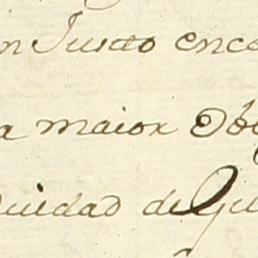 n Justo ence
a maior Obe
uidad de Gu